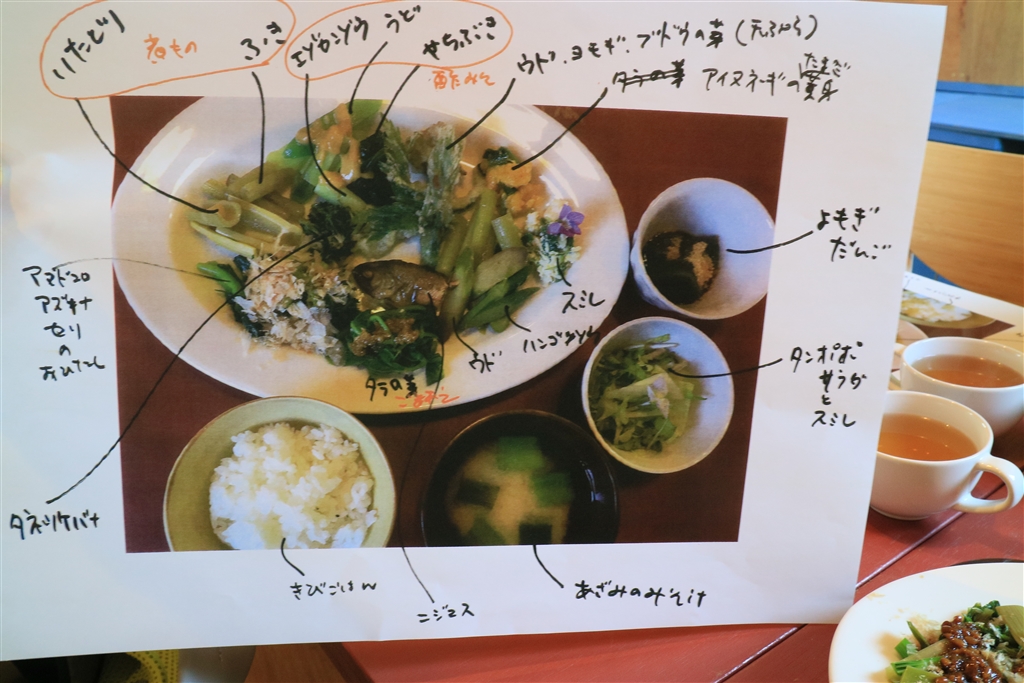 いたどり
煮もの
ふき
エゾカンゾウ
うど
やちぶき
酢みそ
ウド、ヨモギ、ブドウの葉（天ぷら）
アイヌネギの
たまご
よもぎ
だんご
アマドコロ
アズキナ
セリ
の
おひたし
スミレ
ハンゴンソウ
ウド
タラの葉
ごまみそ
タンポポ
サラダ
と
スミレ
タネツケバナ
きびごはん
ニジマス
あざみのみそ汁